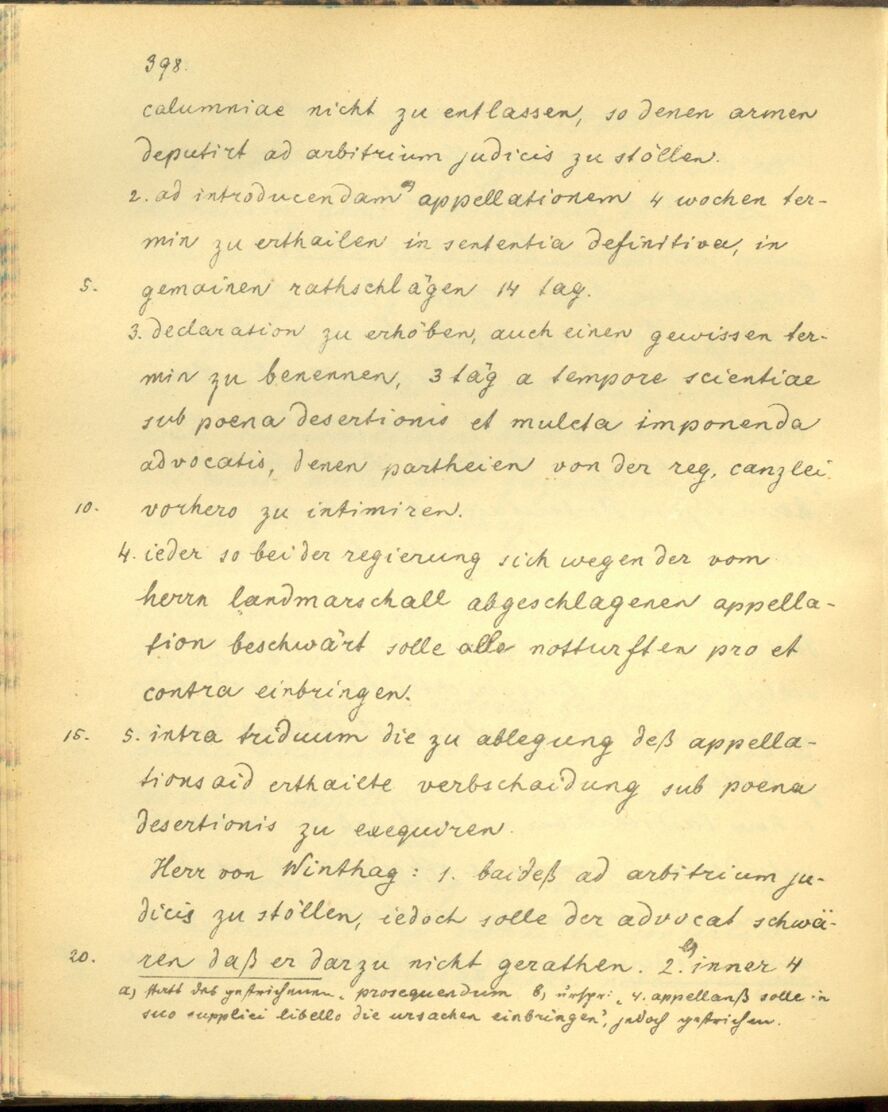 398.
calumniae nicht zu entlassen, so denen armen
deputirt ad arbitrium judicis zu stöllen.
2. ad introducendam a) appellationem 4 wochen ter-
min zu erthailen in sententia definitiva, in
5. gemainen rathschlägen 14 tag.
3. declaration zu erhöben, auch einen gewissen ter-
min zu benennen, 3 täg a tempore scientiae
sub poena desertionis et mulcta imponenda
advocatis, denen partheien von der reg. canzlei
10. vorhero zu intimiren.
4. ieder so bei der regierung sich wegen der vom
herrn landmarschall abgeschlagenen appella-
tion beschwärt solle alle notturften pro et
contra einbringen.
15. 5. intra triduum die zu ablegung deß appella-
tionsaid erthailte verbschaidung sub poena
desertionis zu exequiren.
Herr von Winthag: 1. baideß ad arbitrium ju-
dicis zu stöllen, iedoch solle der advocat schwä-
20. ren daß er darzu nicht gerathen. 2. b) inner 4
a) statt des gestrichenen „prosequendum b) urspr: „4. appellanß solle in
suo supplici libello die ursachen einbringen“, jedoch gestrichen.